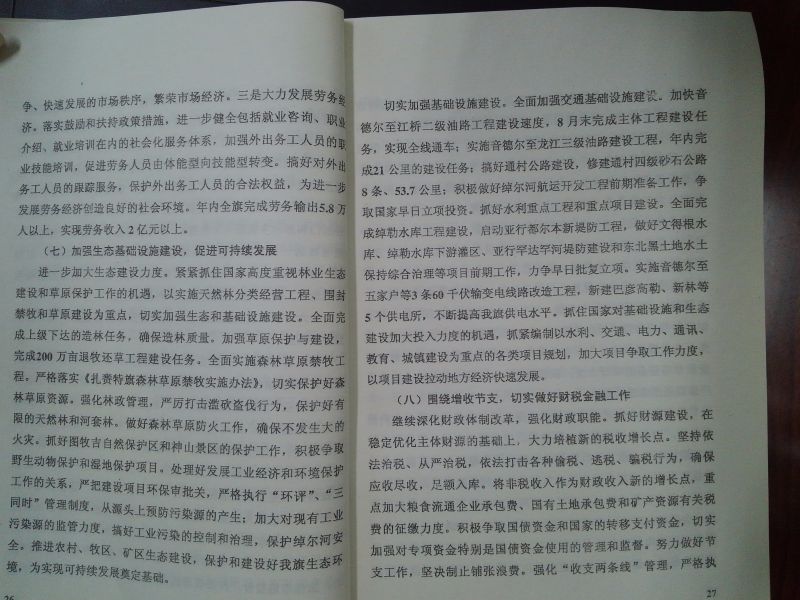 争、快速发展的市场秩序，繁荣市场经济。三是大力发展劳务经
济。落实鼓励和扶持政策措施，进一步健全包括就业咨询、职业
介绍、就业培训在内的社会化服务体系，加强外出务工人员的职
业技能培训，促进劳务人员由体能型向技能型转变。搞好对外出
务工人员的跟踪服务，保护外出务工人员的合法权益，为进一步
发展劳务经济创造良好的社会环境。年内全旗完成劳务输出5.8 万
人以上，实现劳务收入 2 亿元以上。
（七）加强生态基础设施建设，促进可持续发展
进一步加大生态建设力度。紧紧抓住国家高度重视林业生态
建设和草原保护工作的机遇，以实施天然林分类经营工程、围封
禁牧和草原建设为重点，切实加强生态和基础设施建设。全面完
成上级下达的造林任务，确保造林质量。加强草原保护与建设，
完成200 万亩退牧还草工程建设任务。全面实施森林草原禁牧工
程。严格落实《扎赉特旗森林草原禁牧实施办法》，切实保护好森
林草原资源。强化林政管理，严厉打击滥砍盗伐行为，保护好有
限的天然林和河套林。做好森林草原防火工作，确保不发生大的
火灾。抓好图牧吉自然保护区和神山景区的保护工作，积极争取
野生动物保护和湿地保护项目。处理好发展工业经济和环境保护
工作的关系，严把建设项目环保审批关，严格执行“环评”、“三
同时”管理制度，从源头上预防污染源的产生；加大对现有工业
污染源的监管力度，搞好工业污染的控制和治理，保护绰尔河安
全。推进农村、牧区、矿区生态建设，保护和建设好我旗生态环
境，为实现可持续发展奠定基础。
26
切实加强基础设施建设。全面加强交通基础设施建设。加快音
德尔至江桥二级油路工程建设速度，8 月末完成主体工程建设任
务，实现全线通车；实施音德尔至龙江三级油路建设工程，年内完
成21 公里的建设任务；搞好通村公路建设，修建通村四级砂石公路
8 条、53.7 公里；积极做好绰尔河航运开发工程前期准备工作，争
取国家早日立项投资。抓好水利重点工程和重点项目建设。全面完
成绰勒水库工程建设，启动亚行都尔本新堤防工程，做好文得根水
库、绰勒水库下游灌区、亚行罕达罕河堤防建设和东北黑土地水土
保持综合治理等项目前期工作，力争早日批复立项。实施音德尔至
五家户等3 条60 千伏输变电线路改造工程，新建巴彦高勒、新林等
5 个供电所，不断提高我旗供电水平。抓住国家对基础设施和生态
建设加大投入力度的机遇，抓紧编制以水利、交通、电力、通讯、
教育、城镇建设为重点的各类项目规划，加大项目争取工作力度，
以项目建设拉动地方经济快速发展。
（八）围绕增收节支，切实做好财税金融工作
继续深化财政体制改革，强化财政职能。抓好财源建设，在
稳定优化主体财源的基础上，大力培植新的税收增长点。坚持依
法治税、从严治税，依法打击各种偷税、逃税、骗税行为，确保
应收尽收，足额入库。将非税收入作为财政收入新的增长点，重
点加大粮食流通企业承包费、国有土地承包费和矿产资源有关税
费的征缴力度。积极争取国债资金和国家的转移支付资金，切实
加强对专项资金特别是国债资金使用的管理和监督。努力做好节
支工作，坚决制止铺张浪费。强化“收支两条线”管理，严格执
27